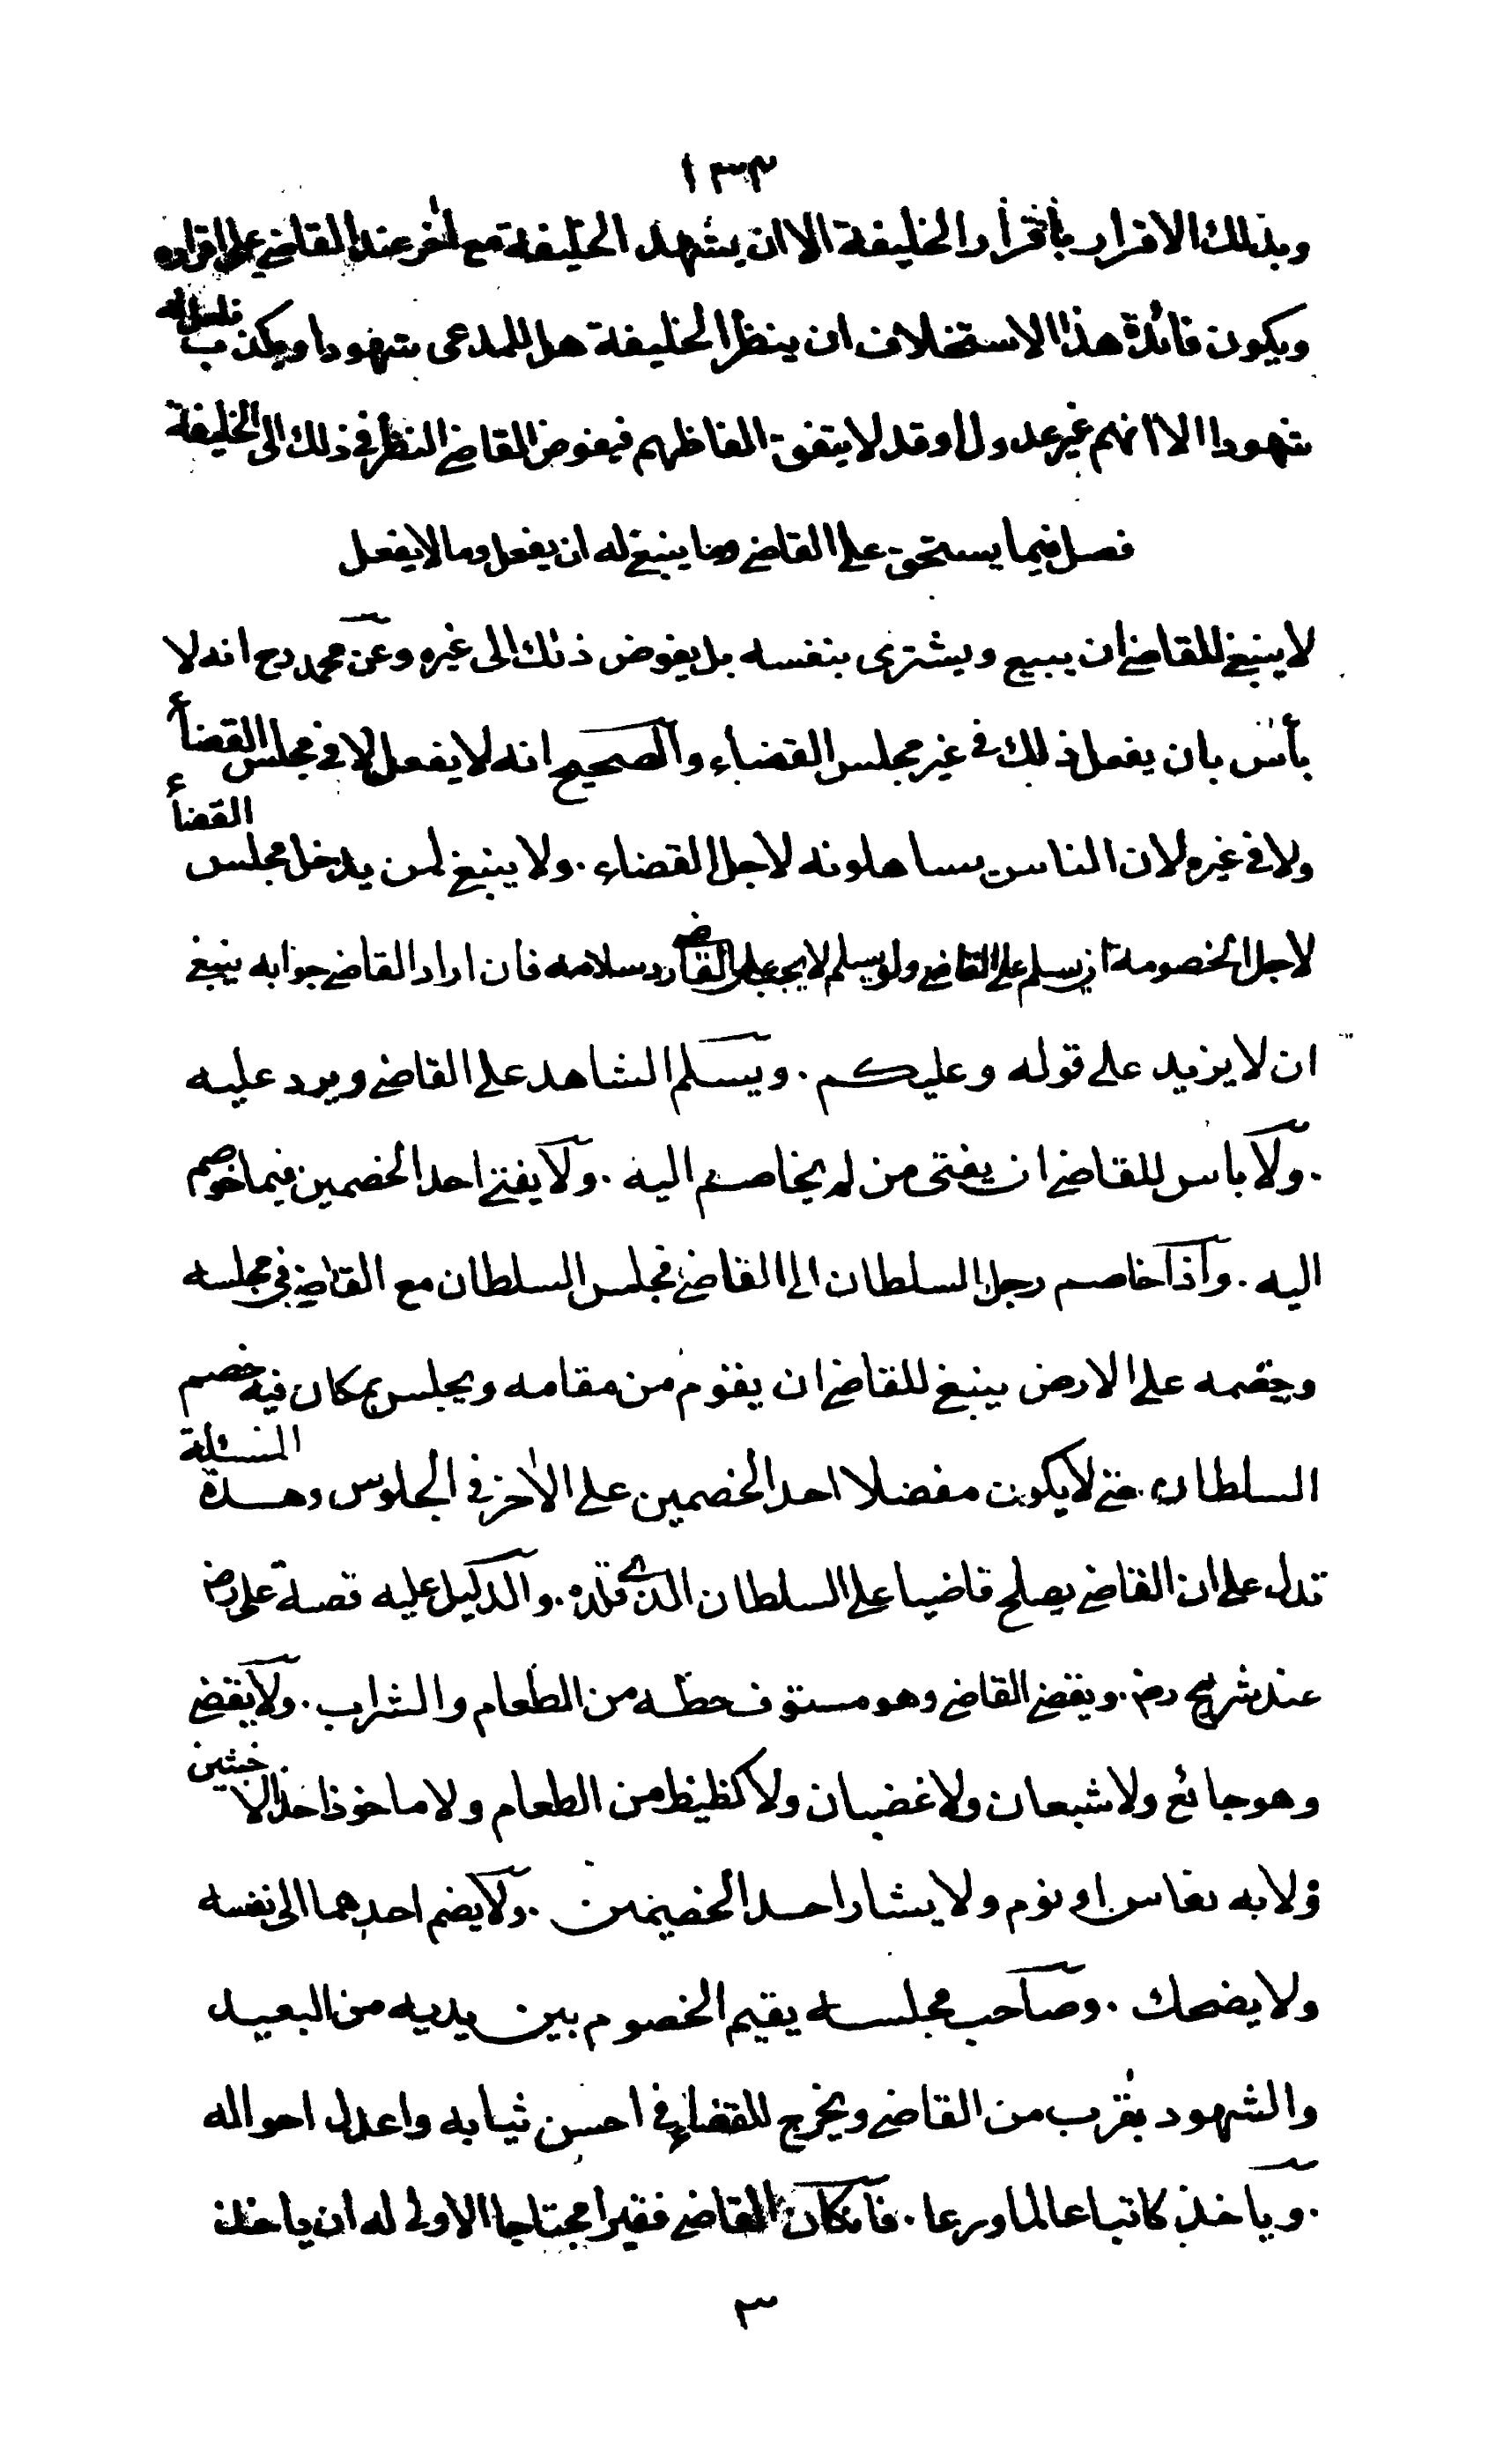 ١٣٣
وبذلك الاقرار باقرار الخليفة الا ان يشهد الخليفة مع اخر عند القاضي على اقراره
ويكون فائدة هذا الاستخلاف ان ينظر الخليفة هل للمدعى شهود او يكذب
شهودا الا انهم غير عدول او قد لا يتفق الفاظهم فيفوض القاضي النظر في ذلك الى الخليفة
فصل فيما يستحق على القاضي وما ينبغي له ان يفعل وما لا يفعل
لا ينبغي للقاضي ان يبيع ويشترى بنفسه بل يفوض ذلك الى غيره وعن محمد رح انه لا
بأس بان يفعل ذلك في غير مجلس القضاء والصحيح انه لا يفعل لا في مجلس القضأ
ولا في غيره لان الناس يساهلونه لاجل القضاء . ولا ينبغي لمن يدخل مجلس القضأ
لاجل الخصومة ان يسلم على القاضي ولو يسلم لا يجب على القاضي رد سلامه فان اراد القاضي جوابه ينبغي
ان لا يزيد على قوله وعليكم . ويسلم الشاهد على القاضي ويرد عليه
. ولا باس للقاضي ان يفتى من لم يخاصم اليه . ولا يفتي احد الخصمين فيما خوصم
اليه . واذا خاصم رجل السلطان الى القاضي فجلس السلطان مع القاضي في مجلسه
وخصمه على الارض ينبغي للقاضي ان يقوم من مقامه ويجلس بمكان فيه خصم
السلطان حتى لا يكون مفضلا احد الخصمين على الاخر في الجلوس وهذه المسئلة
تدل على ان القاضي يصلح قاضيا على السلطان الذى قلده . والدليل عليه قصة على رض
عند شريح رض . ويقضي القاضي وهو مستوف حظه من الطعام والشراب . ولا يقضي
وهو جائع ولا شبعان ولا غضبان ولا كظيظ من الطعام ولا ماخوذ احد الاخبثين
ولا به نعاس او نوم ولا يشار احد الخصمين . ولا يضم احدهما الى نفسه
ولا يضحك . وصاحب مجلسه يقيم الخصوم بين يديه من البعيد
والشهود بقرب من القاضي ويخرج للقضاء في احسن ثيابه واعدل احواله
. وياخذ كاتبا عالما ورعا . فانكان القاضي فقيرا محتاجا الاولى له ان ياخذ
٣